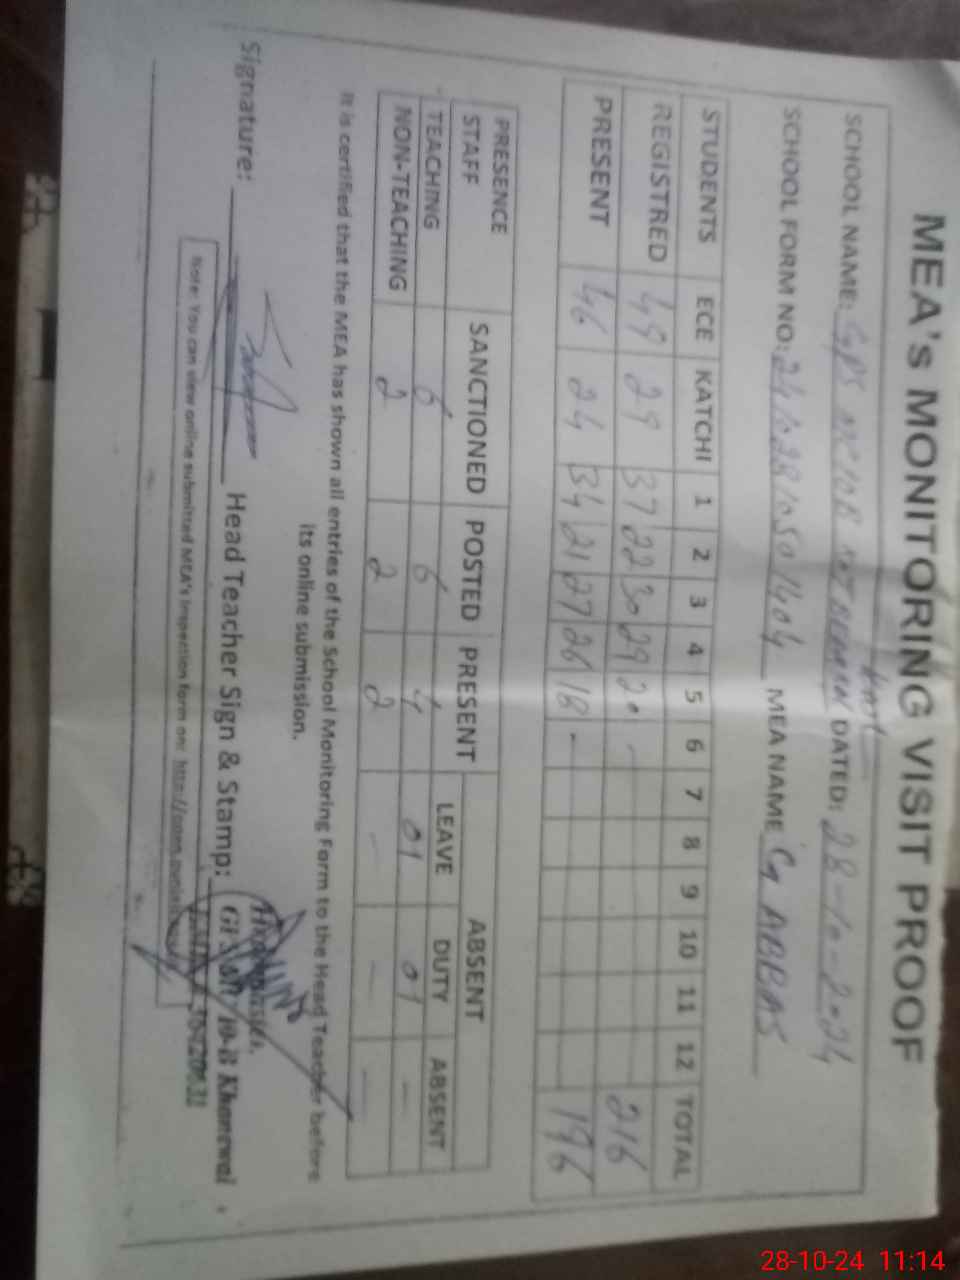 MEA's MONITORING VISIT PROOF
SCHOOL NAME: GPS DATED: 28-10-2024
SCHOOL FORM NO: MEA NAME G ABBAS
STUDENTS ECE KATCHI 1 2 3 4 5 6 7 8 9 10 11 12 TOTAL
REGISTRED 49 29 37 22 30 29 20 - 216
PRESENT 46 24 34 21 27 26 18 - 196
PRESENCE STAFF SANCTIONED POSTED PRESENT ABSENT
LEAVE DUTY ABSENT
TEACHING 6 6 4 01 01 -
NON-TEACHING 2 2 2 - - -
It is certified that the MEA has shown all entries of the School Monitoring Form to the Head Teacher before
its online submission.
Signature: Head Teacher Sign & Stamp:
10-B Khanewal
Note: You can view online submitted MEA's Inspection form on:
28-10-24 11:14